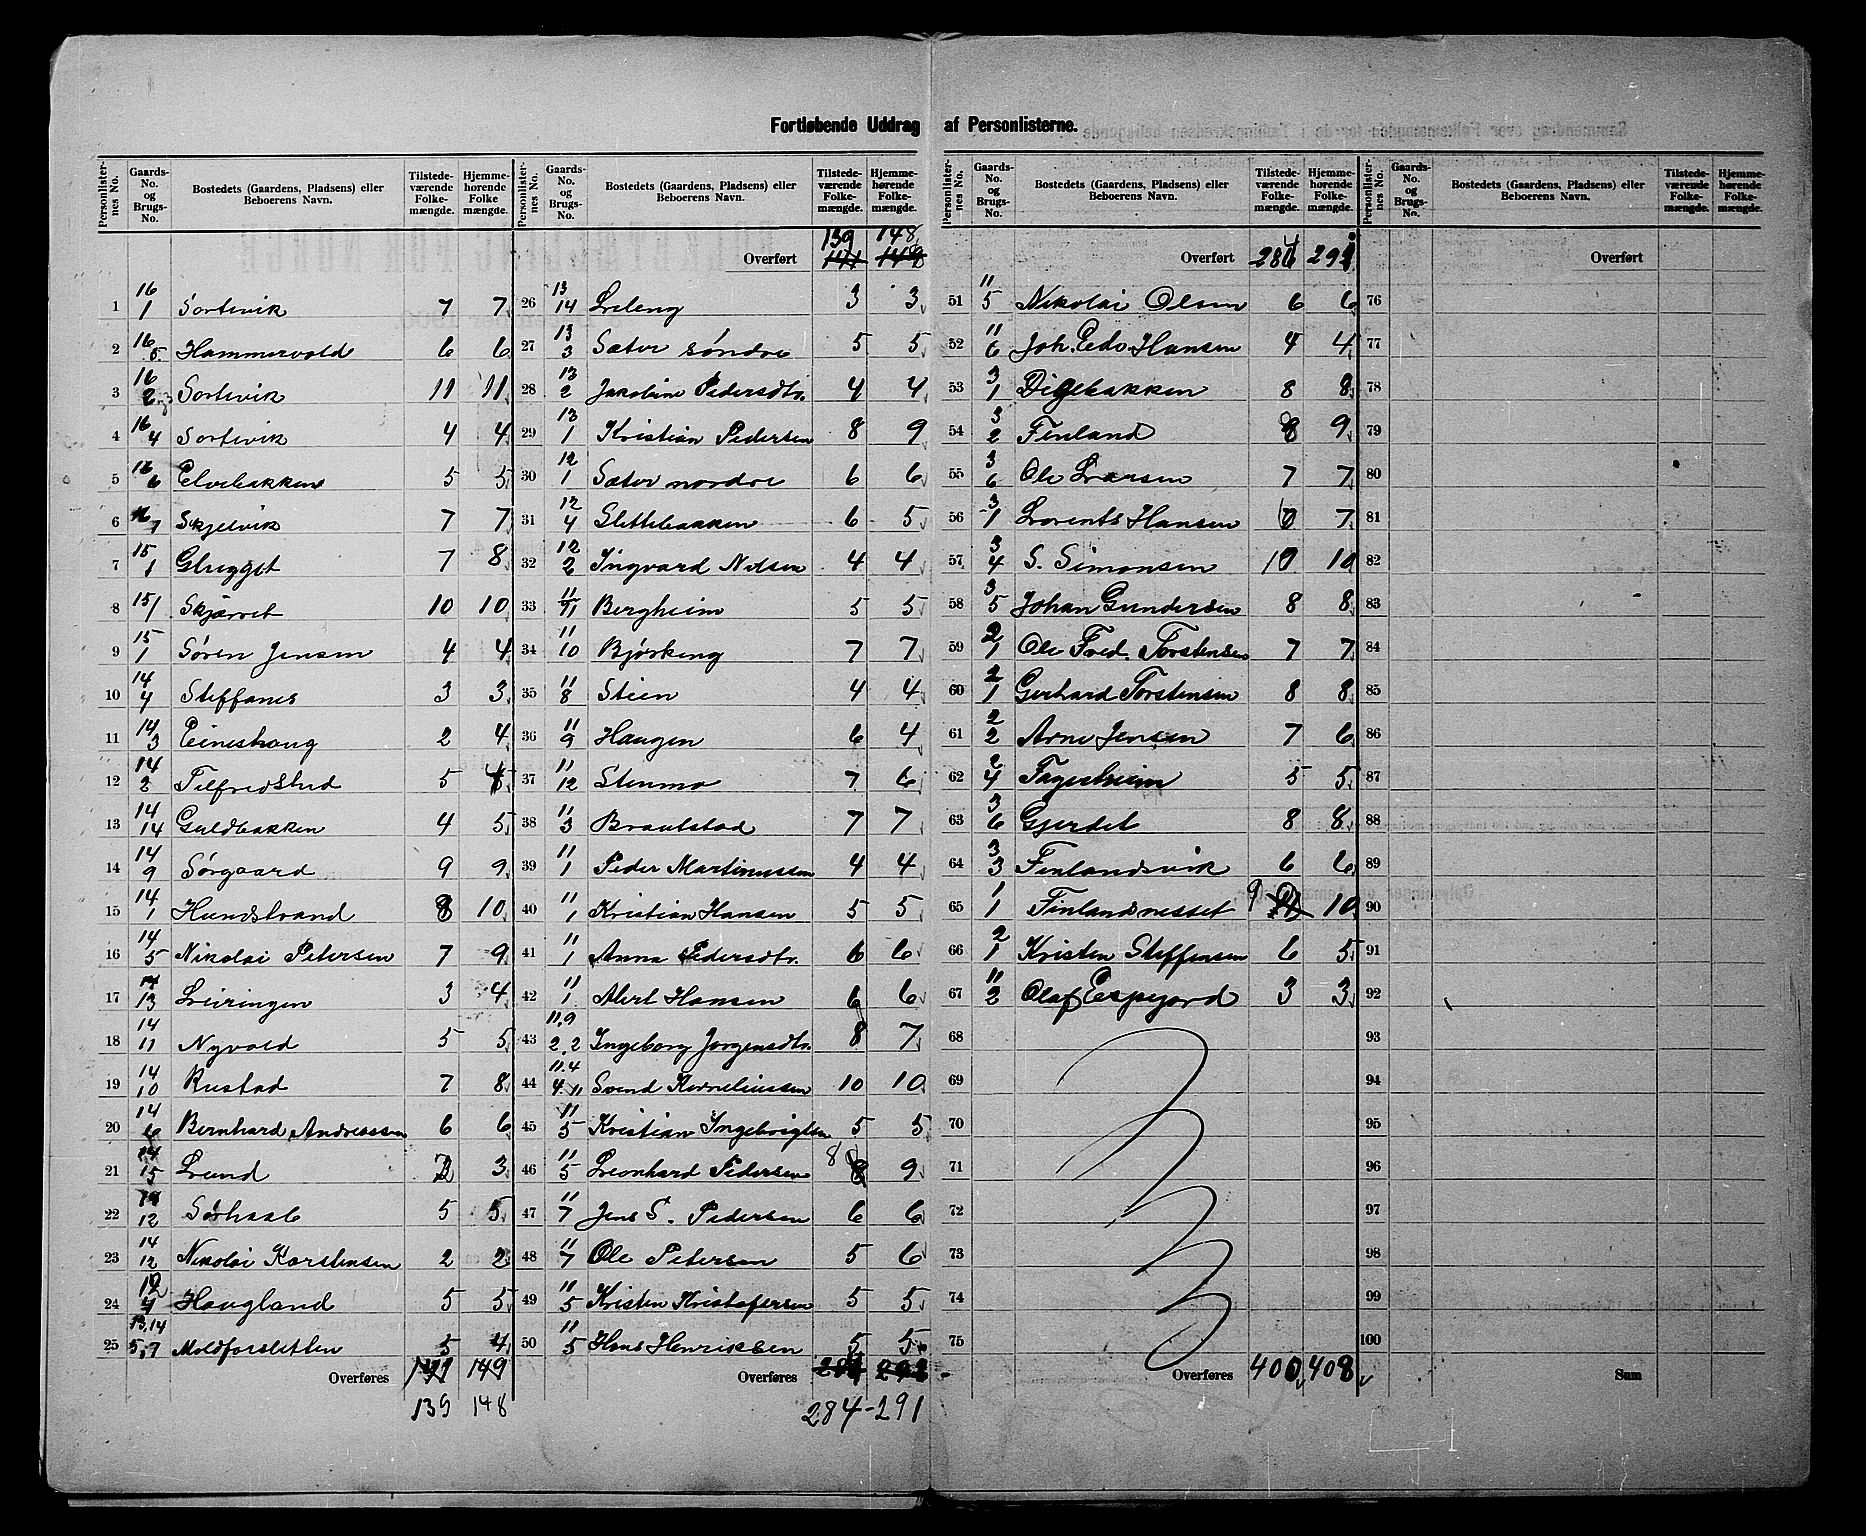 Fortløbende Uddrag af Personlisterne.
Personlister-nes No. Gaards-No. og Brugs-No. Bostedets (Gaardens, Pladsens) eller Beboerens Navn. Tilstede-værende Folke-mængde. Hjemme-hørende Folke-mængde.
1 16/1 Sortevik 7 7
2 16/5 Hammervold 6 6
3 16/2,3 Sortevik 11 11
4 16/4 Sortevik 4 4
5 16/6 Elvebakken 5 5
6 16/7 Skjelvik 7 7
7 15/1 Glugget 7 8
8 15/1 Skjæret 10 10
9 15/1 Søren Jensen 4 4
10 14/4 Steffanes 3 3
11 14/3 Eineshaug 2 4
12 14/2 Tilfredshed 5
13 14/14 Guldbakken 4 5
14 14/9 Sørgaard 9 9
15 14/1 Hundstrand 8 10
16 14/5 Nikolai Petersen 7 9
17 14/13 Leiringen 3 4
18 14/11 Nyvold 5 5
19 14/10 Rustad 7 8
20 14/6 Bernhard Andreassen 6 6
21 14/15 Lund 3
22 14/12 Sørhaab 5 5
23 14/12 Nikolai Karstensen 2 2
24 12/4 Haugland 5 5
25 13,14/5,7 Moldforsletten 5 4
Overføres 149
139 148
Personlister-nes No. Gaards-No. og Brugs-No. Bostedets (Gaardens, Pladsens) eller Beboerens Navn. Tilstede-værende Folke-mængde. Hjemme-hørende Folke-mængde.
139 148
Overført 141 149
26 13/14 Lileng 3 3
27 13/3 Sæter søndre 5 5
28 13/2 Jakobine Pedersdtr. 4 4
29 13/1 Kristian Pedersen 8 9
30 12/1 Sæter nordre 6 6
31 12/4 Slettebakken 6 5
32 12/2 Ingvard Nilsen 4 4
33 11/11 Bergheim 5 5
34 11/10 Bjørkeng 7 7
35 11/8 Stien 4 4
36 11/9 Haugen 6 4
37 11/12 Stenmo 7 6
38 11/3 Brautstad 7 7
39 11/1 Peder Martinussen 4 4
40 11/1 Kristian Hansen 5 5
41 11/1 Anna Pedersdtr. 6 6
42 11/1 Albert Hansen 6 6
43 11,9/2,2 Ingeborg Jørgensdtr. 8 7
44 11,4/4,11 Svend Korneliussen 10 10
45 11/5 Kristian Ingebrigtsen 5 5
46 11/5 Leonhard Pedersen 8 9
47 11/7 Jens S. Pedersen 6 6
48 11/7 Ole Petersen 5 6
49 11/5 Kristen Kristofersen 5 5
50 11/5 Hans Henriksen 5 5
Overføres
284-291
Personlister-nes No. Gaards-No. og Brugs-No. Bostedets (Gaardens, Pladsens) eller Beboerens Navn. Tilstede-værende Folke-mængde. Hjemme-hørende Folke-mængde.
Overført 284 291
51 11/5 Nikolai Olsen 6 6
52 11/6 Joh. Peds Hansen 4 4
53 3/1 Digebakken 8 8
54 3/2 Finland 8 9
55 3/6 Ole Larsen 7 7
56 3/1 Lorents Hansen 7
57 3/4 S. Simonsen 10 10
58 3/5 Johan Gundersen 8 8
59 2/1 Ole Fred. Torstensen 7 7
60 2/1 Gerhard Torstensen 8 8
61 2/2 Arne Jensen 7 6
62 2/4 Fagerheim 5 5
63 3/6 Gjerdet 8 8
64 3/3 Finlandsvik 6 6
65 1/1 Finlandnesset 9 10
66 2/1 Kristen Steffensen 6 5
67 11/2 Olaf Espejord 3 3
68
69
70
71
72
73
74
75
Overføres 400 408
Personlister-nes No. Gaards-No. og Brugs-No. Bostedets (Gaardens, Pladsens) eller Beboerens Navn. Tilstede-værende Folke-mængde. Hjemme-hørende Folke-mængde.
Overført
76
77
78
79
80
81
82
83
84
85
86
87
88
89
90
91
92
93
94
95
96
97
98
99
100
Sum